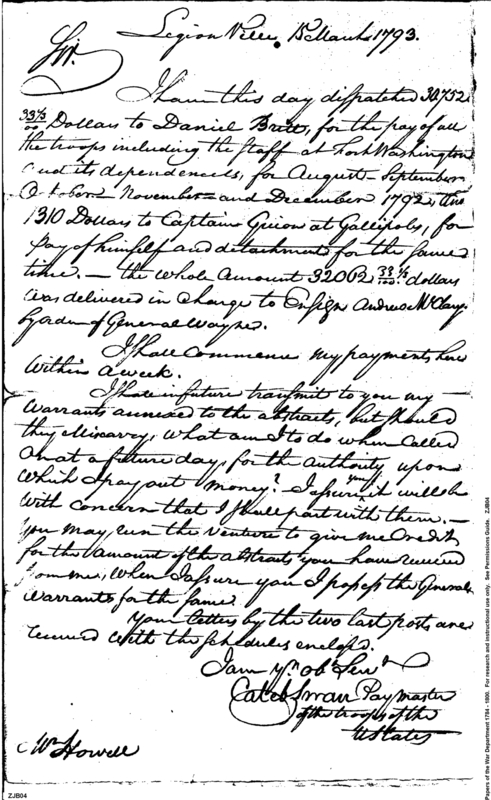 Legion Ville, 15 March 1793.
Sir.
I have this day dispatched 30,752
33⅓/100 Dollars to Daniel Britt, for the pay of all
the troops including the Staff at Fort Washington
and its dependencies, for August - September
October - November - and December 1792, also
1310 Dollars to Captain Guion at Gallipolis, for
pay of himself and detachment for the same
time. — the whole amount 32062 33⅓/100 dollars
was delivered in charge to Ensign Andrew McClary
by order of General Wayne.
I shall commence my payments here
within a week.
I shall in future transmit to you my
warrants annexed to the abstracts, but should
they miscarry, what am I to do when called
on at a future day, for the authority upon
which I pay out money? I assure you it will be
with concern that I shall part with them. —
You may run the venture to give me Credit
for the amount of the abstracts you have received
from me, when I assure you I possess the Generals
warrants for the same.
Your letters by the two last posts are
received with the schedules enclosed.
I am yr. ob Servt
Caleb Swan Paymaster
of the troops of the
U States
Mr Howell
ZJB04
Papers of the War Department 1784 - 1800. For research and instructional use only. See Permissions Guide. ZJB04